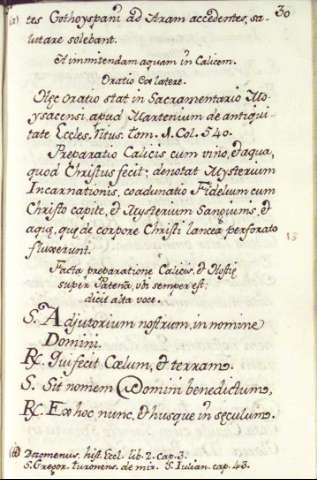 30
(a) tes Gothoyspani ad Aram accedentes, sa-
lutare solebant.
Ad inmitendam aquam in Calicem.
Oratio Ex latere.
Hęc Oratio stat in Sacramentario Mo-
ysacensi, apud Martenium de antiqui-
tate Eccles. Ritus. tom. 1. Col. 540.
Preparatio Calicis cum vino, et aqua,
quod Christus fecit; denotat Mysterium
Incarnationis, coadunatio Fidelium cum
Christo capite, et Mysterium Sanguinis, et
aquę, quę de corpore Christi lancea perforato
fluxerunt.
Facta preparatione Calicis, et Hostię
super Patena, ubi semper est;
dicit alta voce.
S. Adjutorium nostrum, in nomine
Domini.
R. Qui fecit Cœlum, et terram.
S. Sit nomem Domini benedictum,
R. Ex hoc nunc, et husque in sęculum.
(a) hist. Eccl. lib. 2. cap. 3.
S. Gregor. turonens. de mir. S. Iulian. cap. 43.